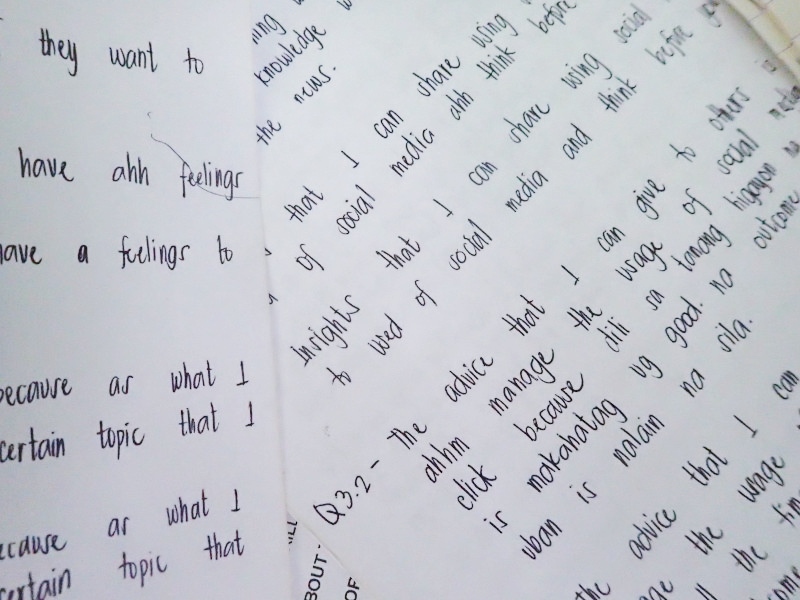 they want to
have ahh feelings
have a feelings to
because as what I
certain topic that I
because as what I
certain topic that
knowledge
the news.
that I can share using
of social media ahh think before
Insights that I can share using social
to wed of social media and think before
Q3.2 - The advice that I can give to others
ahhm manage the usage of social media
click because dili sa tanang higayon na
is makahatag ug good na outcome
uban is nalain na sila.
the advice that I can
the usage
the
BOUT -
OF